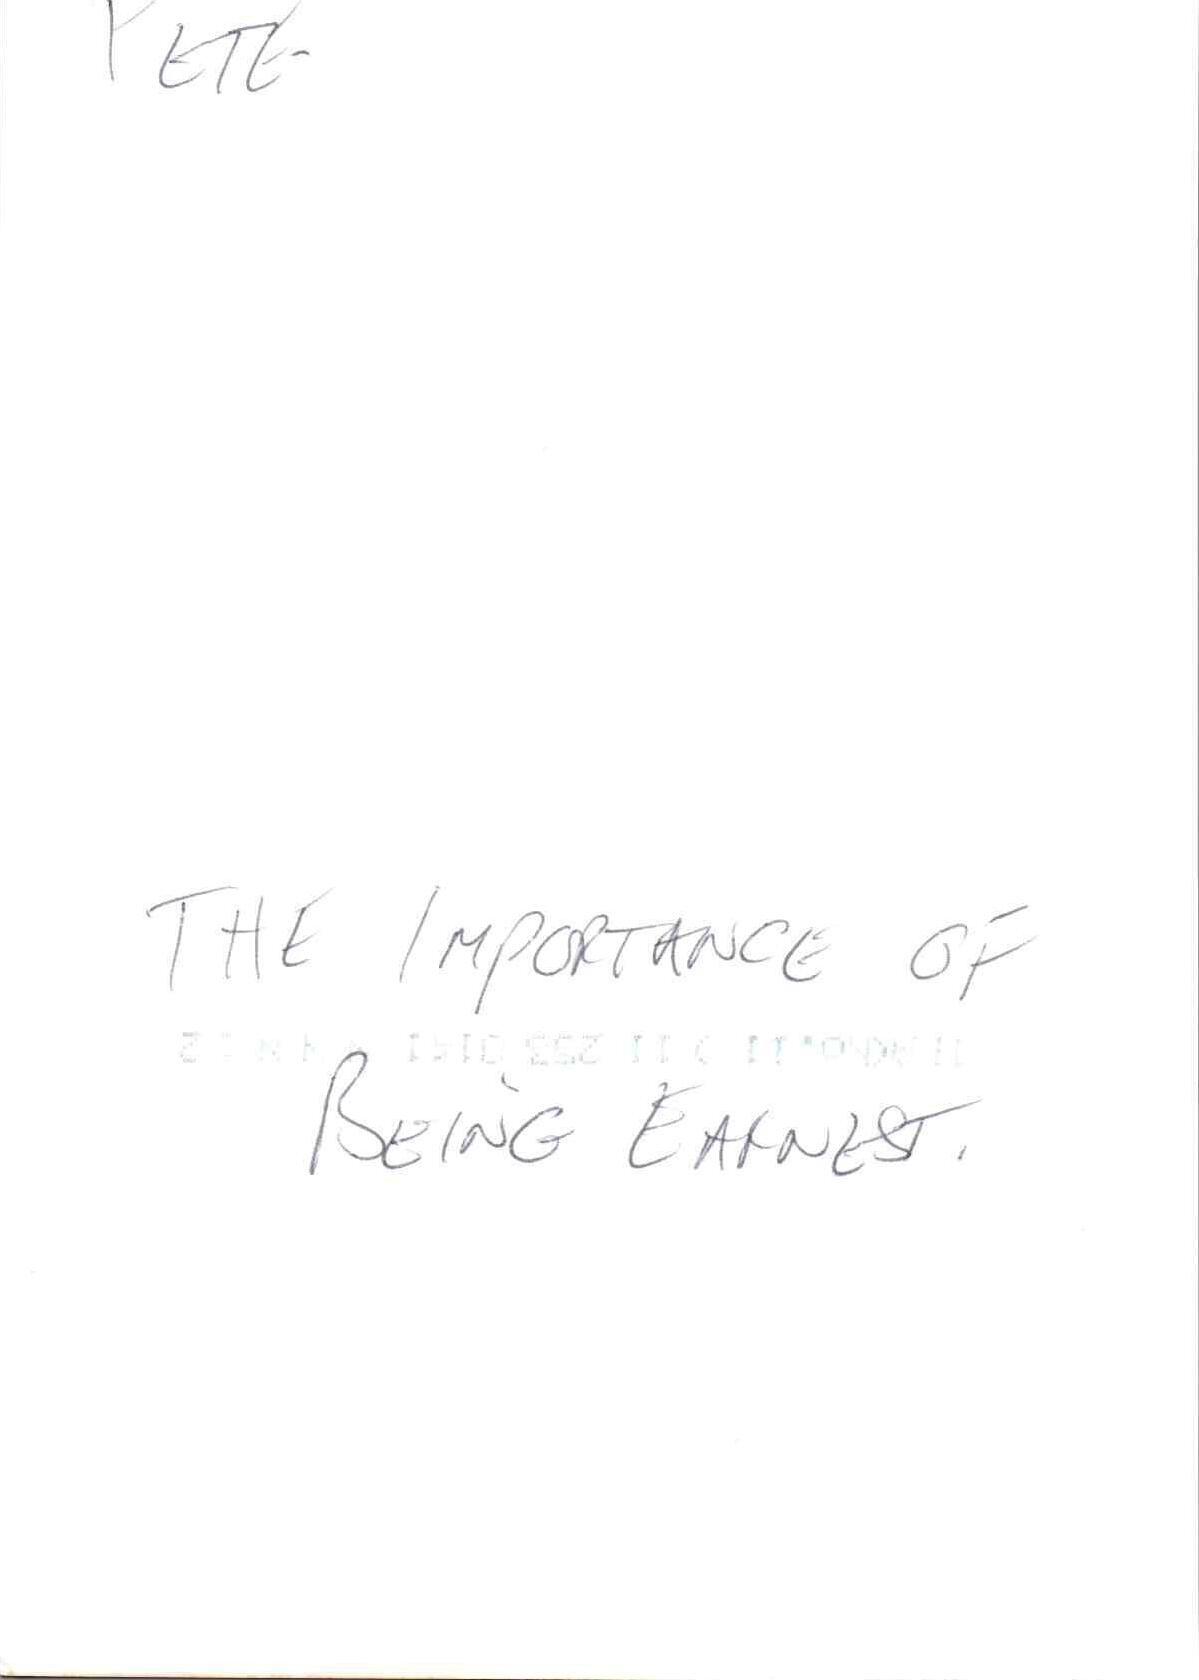 PETE
THE IMPORTANCE OF
BEING EARNEST.